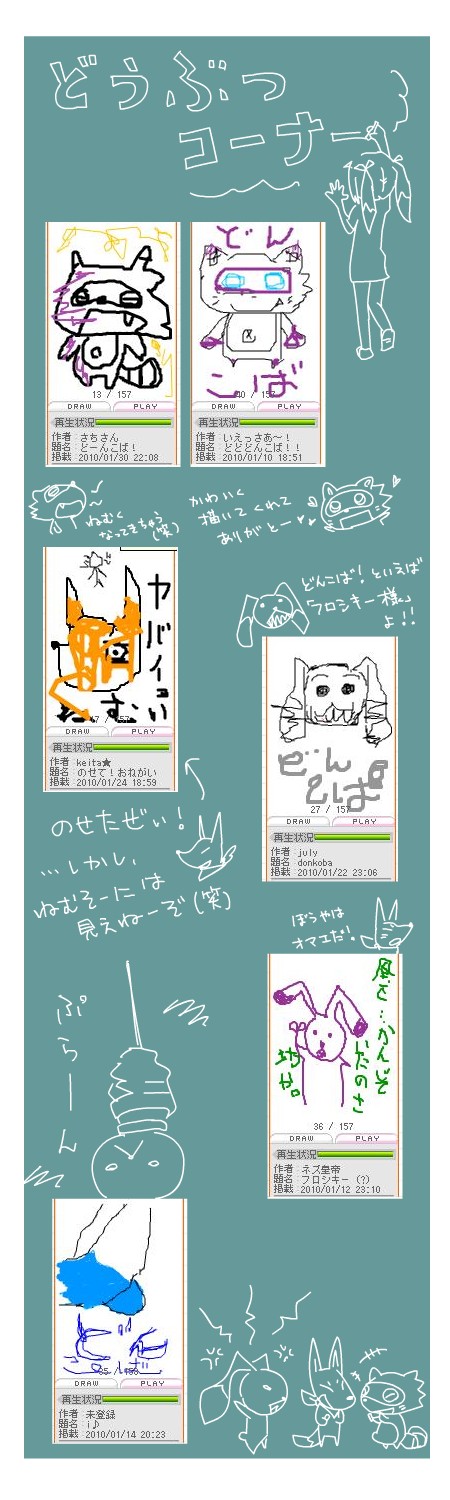 どうぶつ
コーナー
どん
こば
13 / 157
DRAW PLAY
再生状況
作者：さちさん
題名：どーんこば！
掲載：2010/01/30 22:08
40 / 157
DRAW PLAY
再生状況
作者：いえっさあ〜！
題名：どどどんこば！！
掲載：2010/01/10 18:51
ねむく
なってきちゃう
(笑)
かわいく
描いてくれて
ありがとー♥
どんこば！といえば
フロシキー様
よ！！
ヤバイよい
ねむい
157
DRAW PLAY
再生状況
作者：keita★
題名：のせて！おねがい
掲載：2010/01/24 18:59
どん
こば
27 / 157
DRAW PLAY
再生状況
作者：july
題名：donkoba
掲載：2010/01/22 23:06
のせたぜぃ！
…しかし、
ねむそーには
見えねーぞ(笑)
ぼうやは
オマエだ！
風を…かんじて
いたのさ
坊や。
36 / 157
DRAW PLAY
再生状況
作者：ネズ皇帝
題名：フロシキー（？）
掲載：2010/01/12 23:10
ぷらーん
DRAW PLAY
再生状況
作者：未登録
題名：i♪
掲載：2010/01/14 20:23